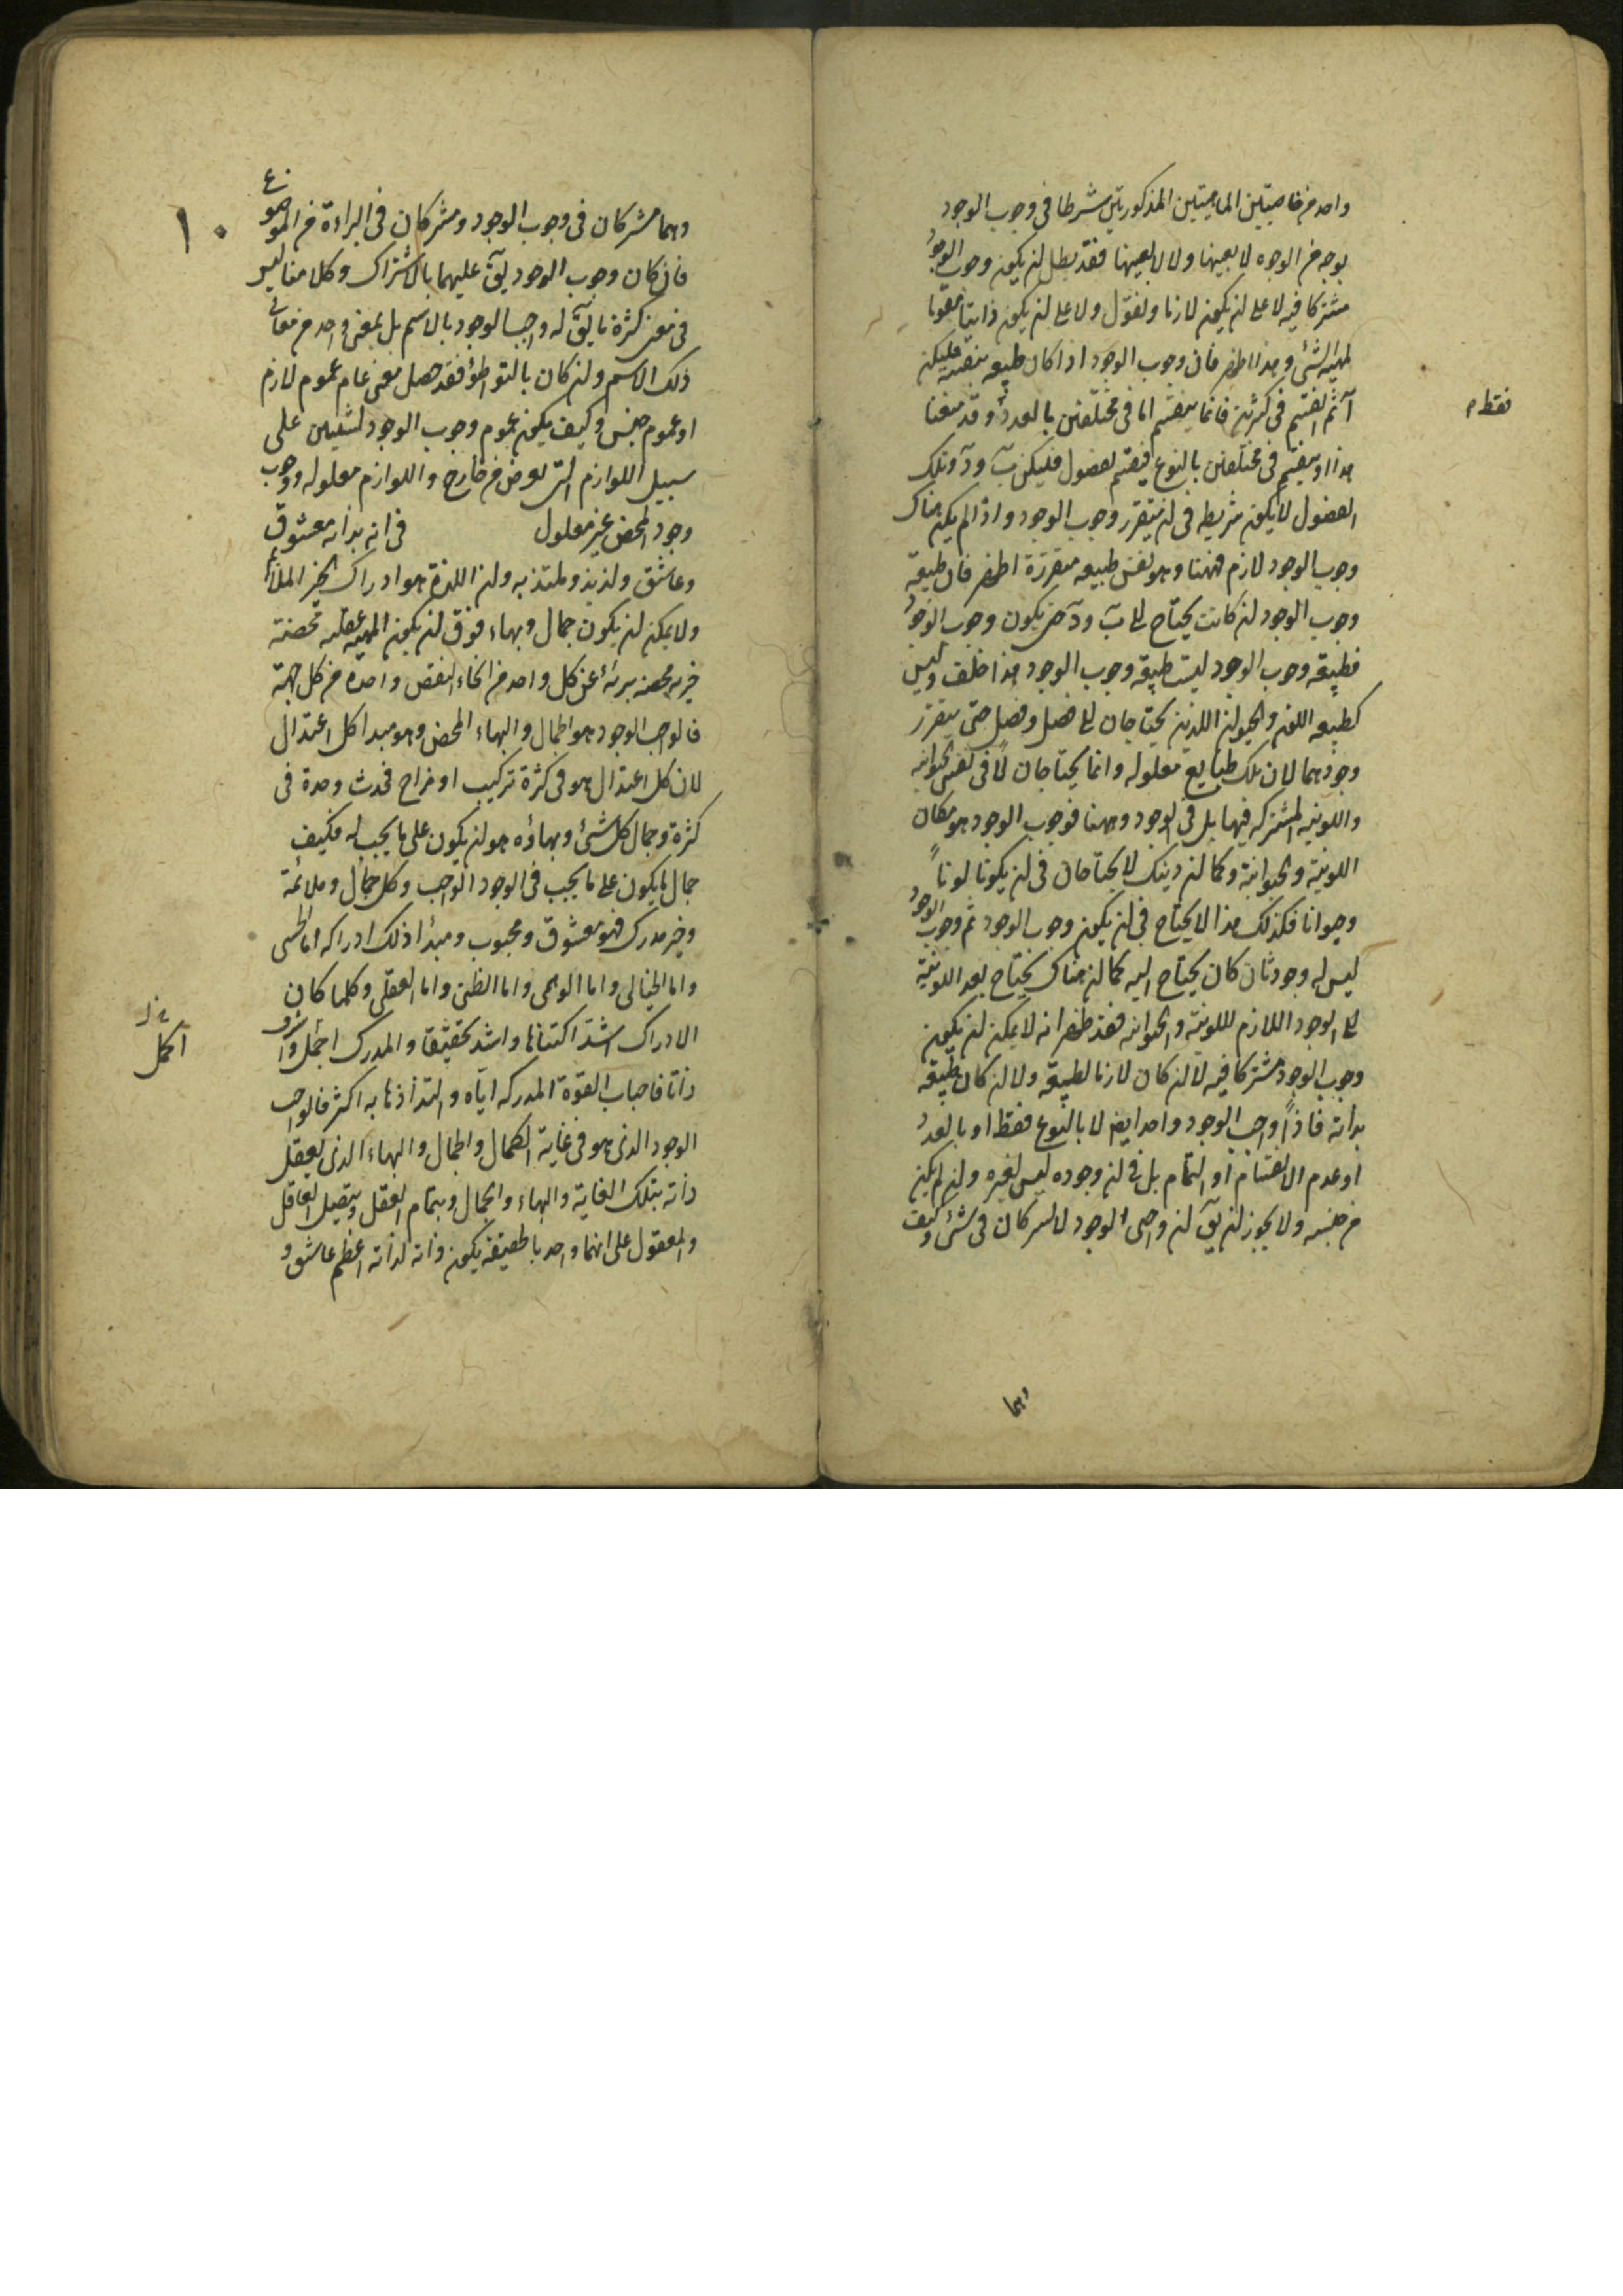 واحد من خاصيتين الماهيتين المذكورتين شرطا فى وجوب الوجود
بوجه من الوجوه لا بعينها ولا لا بعينها فقد بطل ان يكون وجوب الوجود
مشتركا فيه لا على ان يكون لازما ونقول ولا على ان يكون ذاتيا مقوما
لمهية الشئ وهذا اظهر فان وجوب الوجود اذا كان طبيعه بنفسه فليكن
آ ثم انقسم فى كثرين فانما ينقسم اما فى مختلفين بالعدد وقد منعنا
فقط م
هذا او ينقسم فى مختلفين بالنوع فينقسم بفصول فليكن ب و د وتلك
الفصول لا يكون شريطه فى ان يتقرر وجوب الوجود واذا لم يكن هناك
وجوب الوجود لازم فههنا وهو نفس طبيعه متقررة اظهر فان طبيعة
وجوب الوجود ان كانت يحتاج الى ب و د حتى يكون وجوب الوجود
فطبيعة وجوب الوجود ليست طبيعة وجوب الوجود هذا خلف وليس
كطبيعه اللون والحيوان اللذين يحتاجان الى فصل وفصل حتى يتقرر
وجودهما لان تلك طبايع معلوله وانما يحتاجان لا فى نفس الحيوانيه
واللونيه المشتركه فيهما بل فى الوجود وههنا فوجوب الوجود هو مكان
اللونية والحيوانية وكما ان ذينك لا يحتاجان فى ان يكونا لوناً
وحيوانا فكذلك هذا لا يحتاج فى ان يكون وجوب الوجود ثم وجوب الوجود
ليس له وجود ثان كان يحتاج اليه كما ان هناك يحتاج بعد اللونية
الى الوجود اللازم لللونية والحيوانيه فقد ظهر انه لا يمكن ان يكون
وجوب الوجود مشتركا فيه لا ان كان لازما لطبيعة ولا ان كان طبيعة
بذاته فاذاً واجب الوجود واحد ايضا لا بالنوع فقط او بالعدد
او عدم الانقسام او التمام بل فى ان وجوده ليس لغيره وان لم يكن
من جنسه ولا يجوز ان يق ان واجبى الوجود لا يشركان فى شئ وكيف
وهما
وهما مشتركان فى وجوب الوجود ومشتركان فى البراءة من الموضوع
١٠
فان كان وجوب الوجود يق عليهما بالاشتراك وكلامنا ليس
فى منع كثرة ما يق له واجب الوجود بالاسم بل بمعنى واحد من معانى
ذلك الاسم وان كان بالتواطؤ فقد حصل معنى عام عموم لازم
او عموم جنس وكيف يكون عموم وجوب الوجود لشيئين على
سبيل اللوازم التى تعرض من خارج واللوازم معلوله ووجوب
وجود المحض غير معلول فى انه بذاته معشوق
وعاشق ولذيذ وملتذ به وان اللذة هو ادراك الخير الملائم
ولا يمكن ان يكون جمال وبهاء فوق ان يكون المهية عقليه محضة
خيريه محضه بريئة عن كل واحد من انحاء النقص واحدة من كل جهة
فالواجب الوجود هو الجمال والبهاء المحض وهو مبدا كل اعتدال
لان كل اعتدال هو فى كثرة تركيب او مزاج فحدث وحدة فى
كثرة وجمال كل شئ وبهاؤه هو ان يكون على ما يجب له فكيف
جمال ما يكون على ما يجب فى الوجود الواجب وكل جمال وملائمة
وخير مدرك فهو معشوق ومحبوب ومبدأ ذلك ادراكه اما الحسى
واما الخيالى واما الوهمى واما الظنى واما العقلى وكلما كان
الادراك اشد اكتناها واشد تحقيقا والمدرك اجمل واشرف
اكمل
ذاتا فاحباب القوة المدركه اياه والتذاذها به اكثر فالواجب
الوجود الذى هو فى غاية الكمال والجمال والبهاء الذى يعقل
ذاته بتلك الغاية والبهاء والجمال وبتمام العقل وبتعقل العاقل
والمعقول على انهما واحد بالحقيقة يكون ذاته لذاته اعظم عاشق و